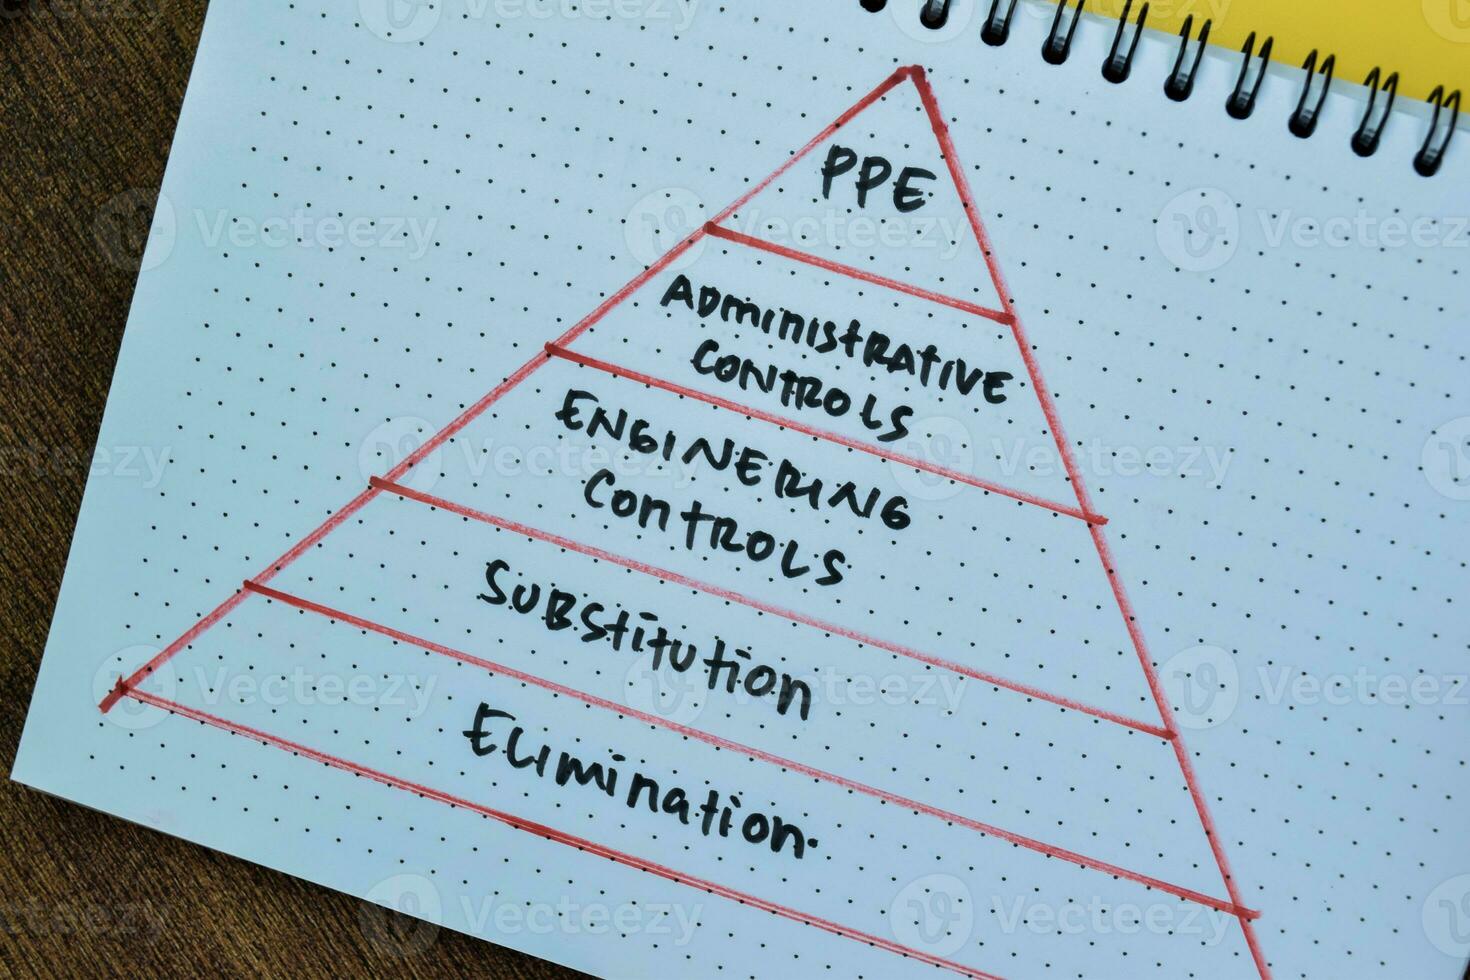 PPE
ADMINISTRATIVE
CONTROLS
ENGINERING
CONTROLS
SUBSTITUTION
ELIMINATION.
Vecteezy
Vecteezy
Vecteezy
Vecteezy
Vecteezy
Vecteezy
Vecteezy
Vecteezy
Vecteezy
Vecteezy
Vecteezy